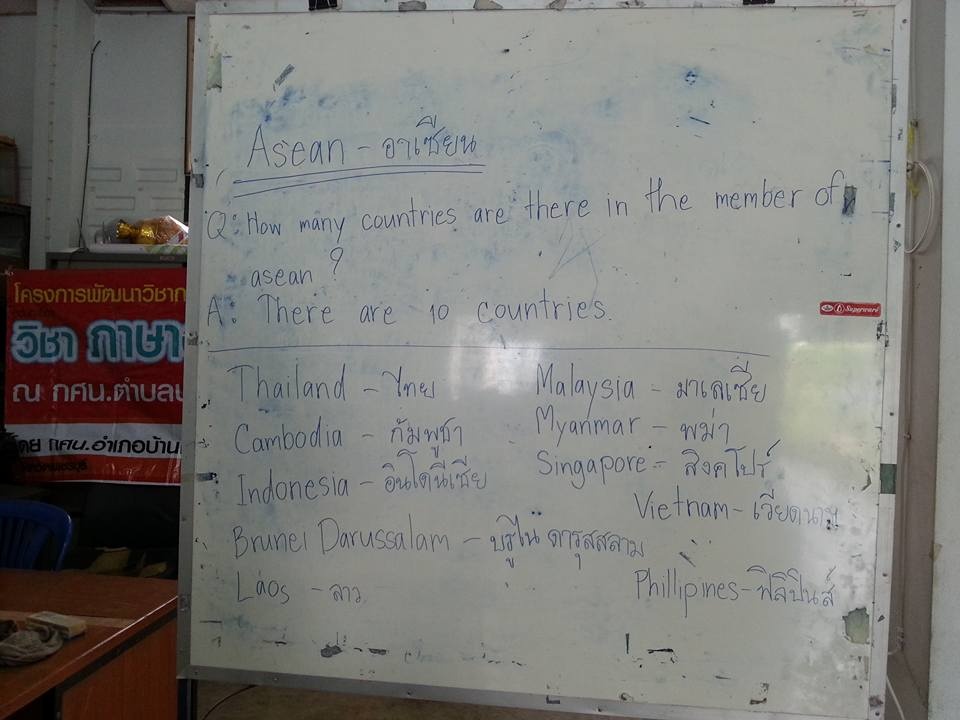 Asean - อาเซียน
Q: How many countries are there in the member of
asean ?
A: There are 10 countries.
Thailand - ไทย
Cambodia - กัมพูชา
Indonesia - อินโดนีเซีย
Brunei Darussalam - บรูไน ดารุสสลาม
Laos - ลาว
Malaysia - มาเลเซีย
Myanmar - พม่า
Singapore - สิงคโปร์
Vietnam - เวียดนาม
Phillipines - ฟิลิปินส์
โครงการพัฒนาวิชาก
วิชา ภาษา
ณ กศน.ตำบล
โดย กศน.อำเภอบ้าน
Superware